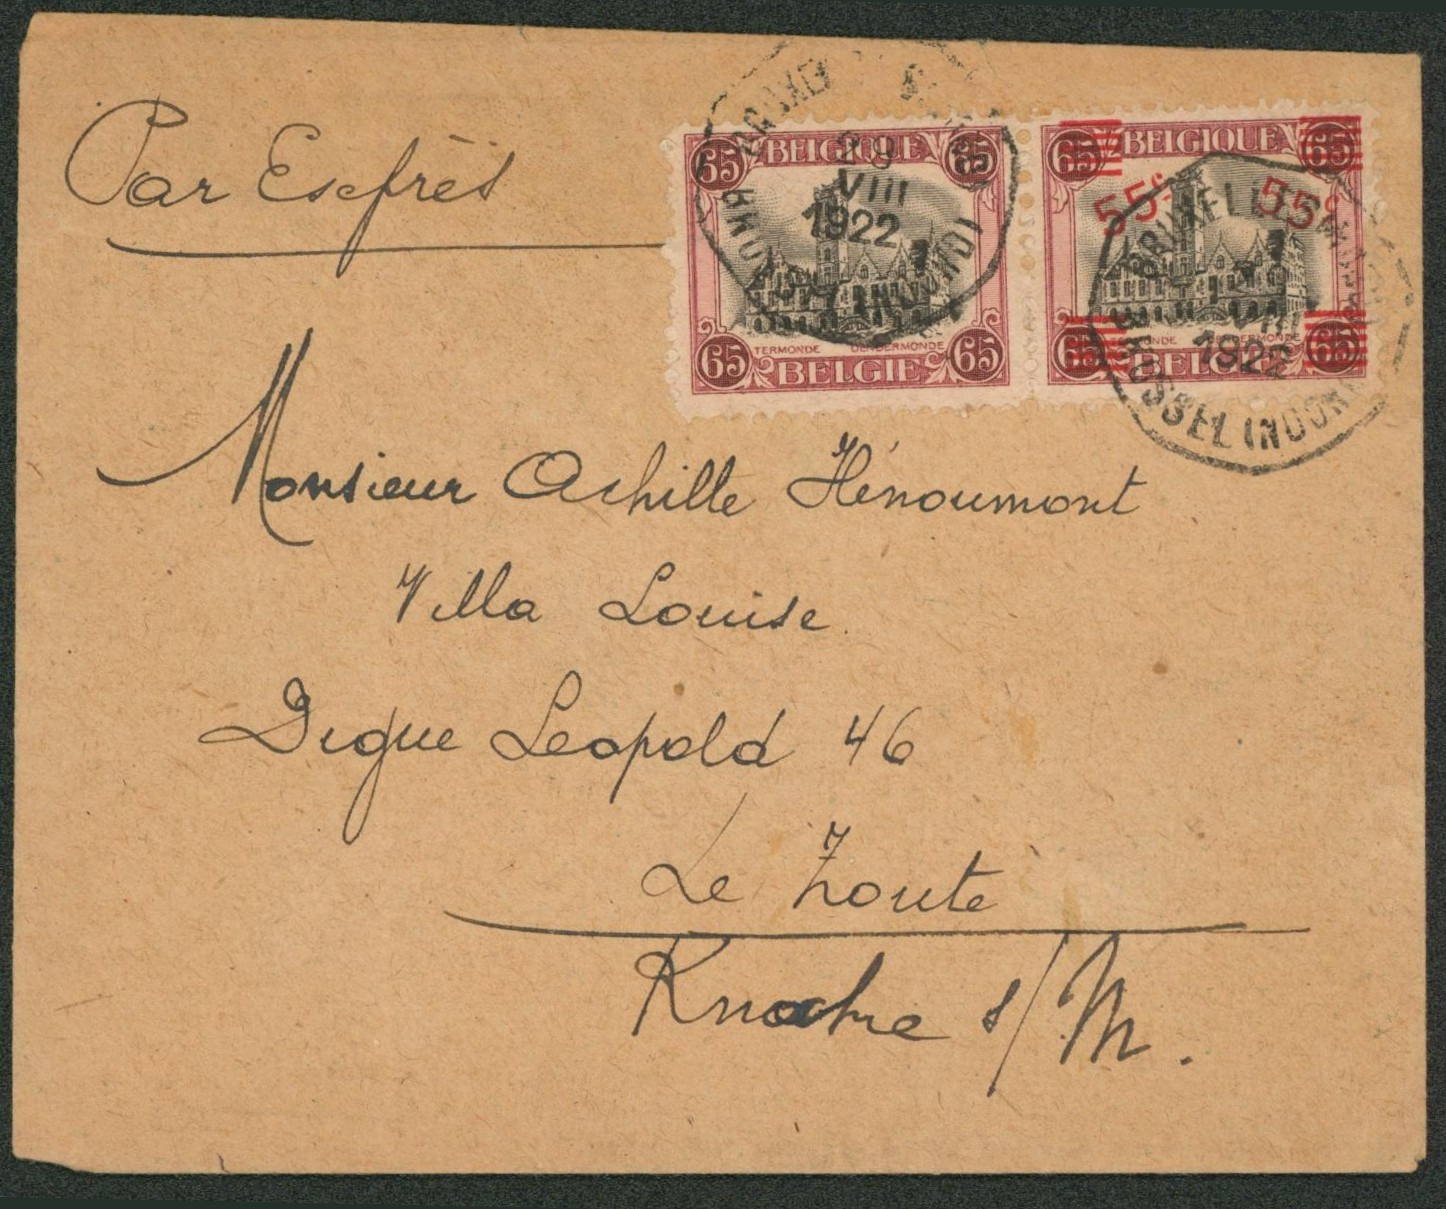 Par Exprès
65 BELGIQUE 65
TERMONDE DENDERMONDE
65 BELGIE 65
29
VIII
1922
65 BELGIQUE 65
55c 55c
65 BELGIE 65
VIII
1922
BRUSSEL (NOORD
Monsieur Achille Hénoumont
Villa Louise
Digue Leopold 46
Le Zoute
Knocke s/M.